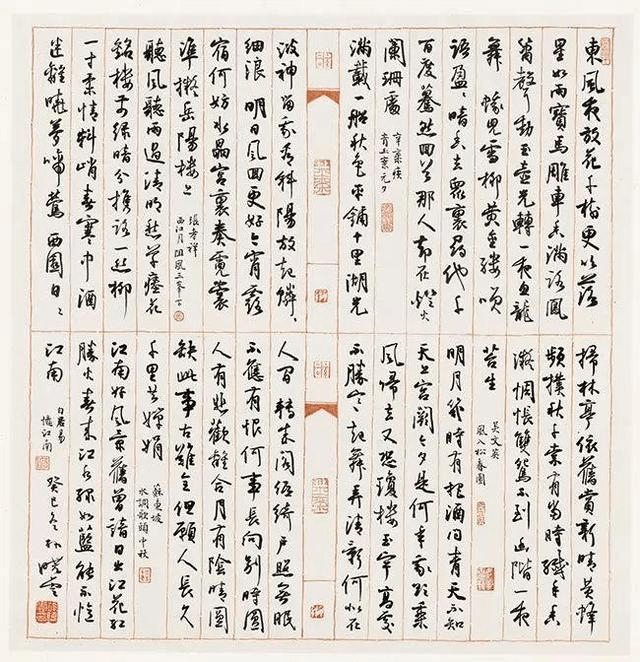 東風夜放花千樹更吹落
星如雨寶馬雕車香滿路鳳
簫聲動玉壺光轉一夜魚龍
舞 蛾兒雪柳黃金縷笑
語盈暗香去眾裏尋他千
百度驀然回首那人却在燈火
闌珊處
辛棄疾
青玉案元夕
滿載一船秋色平鋪十里湖光
波神留我看斜陽放起鱗〻
細浪 明日風回更好今宵露
宿何妨水晶宮裏奏霓裳
準擬岳陽樓上
張孝祥
西江月 阻風三峯下
聽風聽雨過清明愁草瘞花
銘樓前綠暗分攜路一絲柳
一寸柔情料峭春寒中酒
迷離曉夢啼鶯 西園日〻
掃林亭依舊賞新晴黃蜂
頻撲秋千索有當時纖手香
凝惆悵雙鴛不到幽階一夜
苔生
吳文英
風入松春園
明月幾時有把酒問青天不知
天上宮闕今夕是何年我欲乘
風歸去又恐瓊樓玉宇高處
不勝寒起舞弄清影何似在
人間 轉朱閣低綺戶照無眠
不應有恨何事長向別時圓
人有悲歡離合月有陰晴圓
缺此事古難全但願人長久
千里共嬋娟
蘇東坡
水調歌頭中秋
江南好風景舊曾諳日出江花紅
勝火春來江水綠如藍能不憶
江南
白居易
憶江南
癸巳冬 孫曉雲